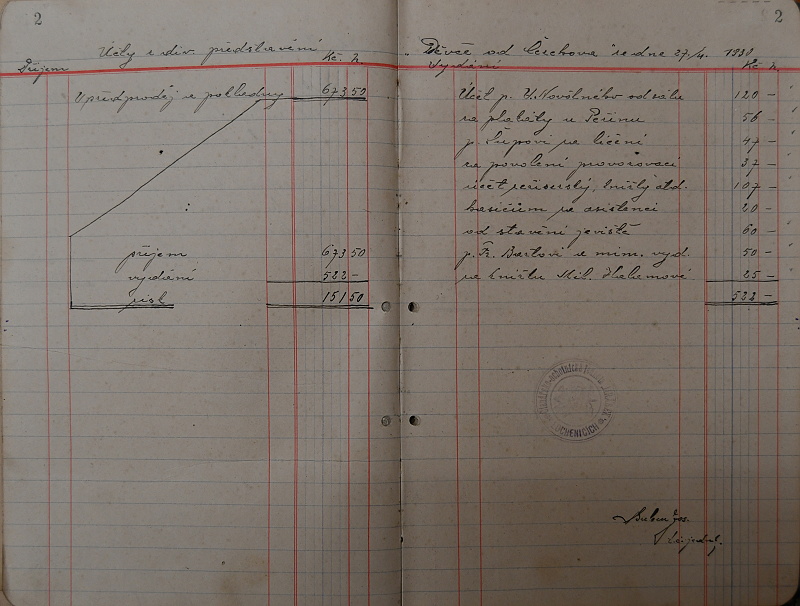 2
Účty z div. představení
Kč. h.
Příjem
V předprodeji a pokladny 673 50
příjem 673 50
vydání 522 –
zisk 151 50
2
"Děvče od Čechova" ze dne 27./4. 1930
Vydání Kč h.
Účet p. V. Novotného od sálu 120 –
za plakáty u Peřinu 56 –
p. Šupovi za líčení 47 –
za povolení provozovací 37 –
účet režiserský, knížky atd. 107 –
hasičům za asistenci 20 –
od stavění jeviště 60 –
p. Fr. Bartoví a mim. vyd. 50 –
za knížku Mil. 25 –
522 –